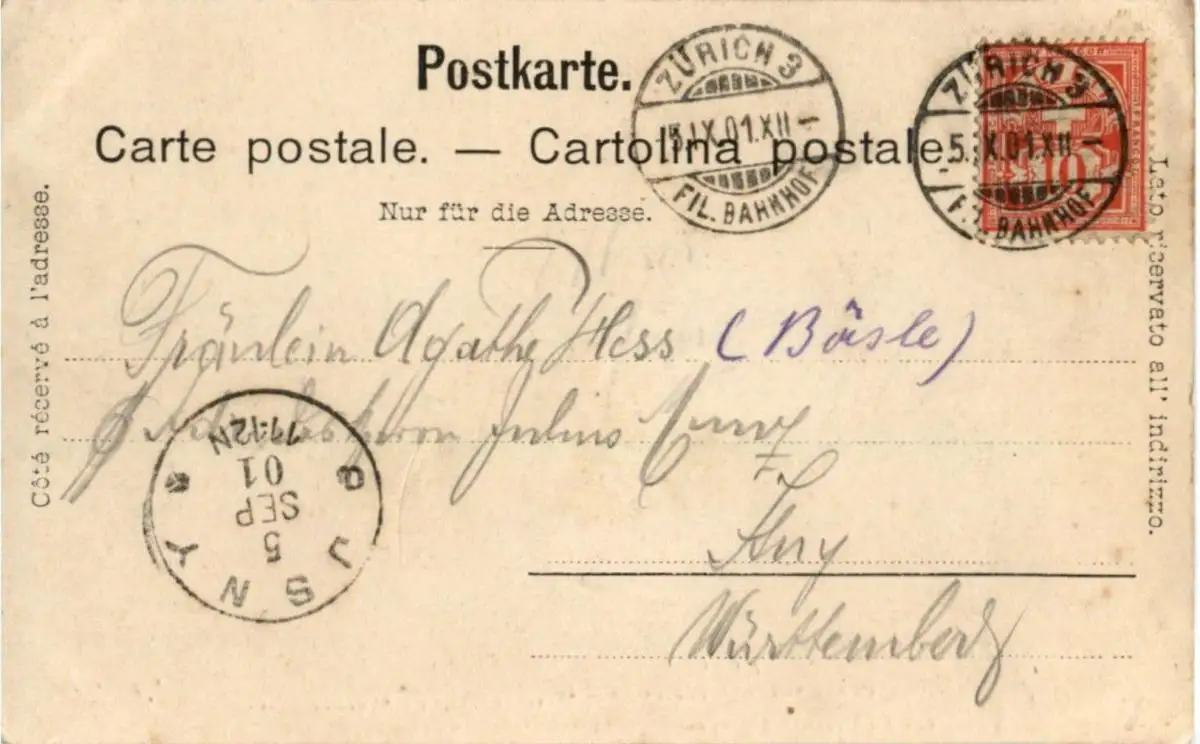 Postkarte.
Carte postale. — Cartolina postale.
Nur für die Adresse.
ZÜRICH 3
5.IX.01.XII—
FIL. BAHNHOF
ZÜRICH 3
5.IX.01.XII—
FIL. BAHNHOF
10
Côté récervé à l'adresse.
Lato riservato all' indirizzo.
Fräulein Agathe Hess (Bäsle)
Julius
Isny
Württemberg
JSNY
5
SEP
01
11-12N